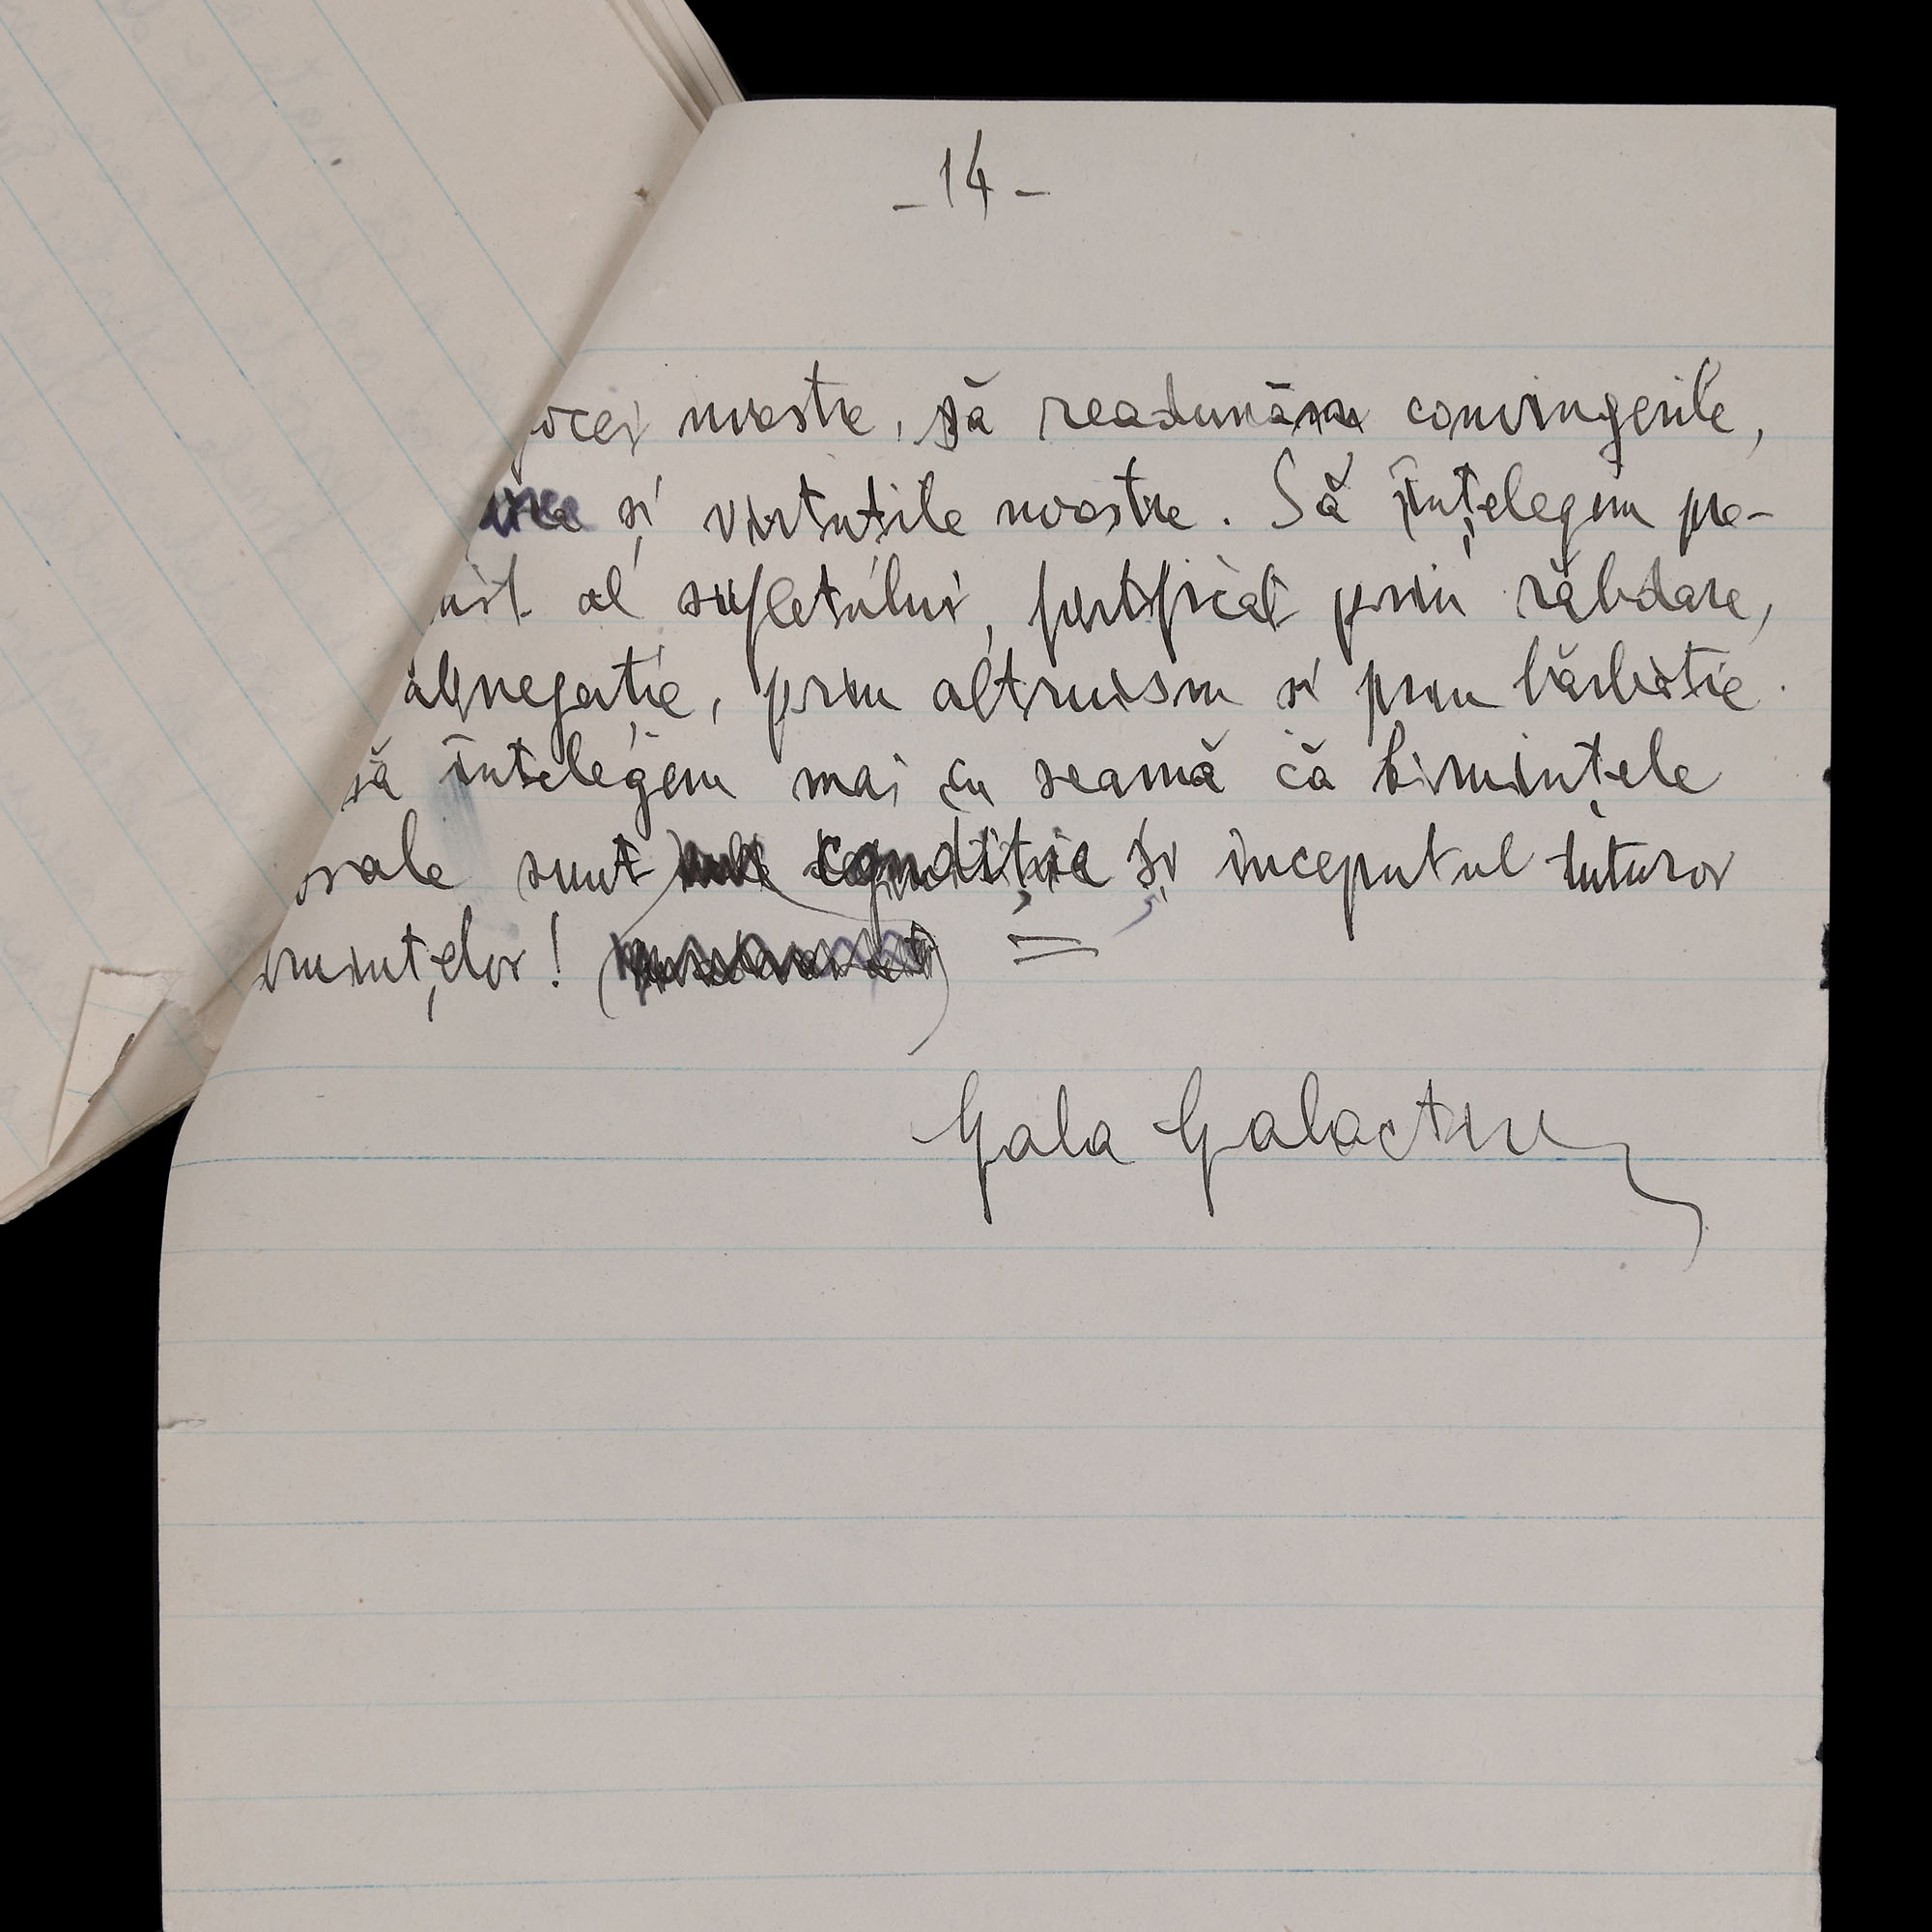 - 14 -
noastre, să readunăm convingerile,
și virtuțile noastre. Să înțelegem pre-
al sufletului, fortificat prin răbdare,
abnegație, prin altruism și prin bărbăție.
să înțelegem mai cu seamă că biruințele
sunt condiția și inceputul tuturor
Gala Galaction